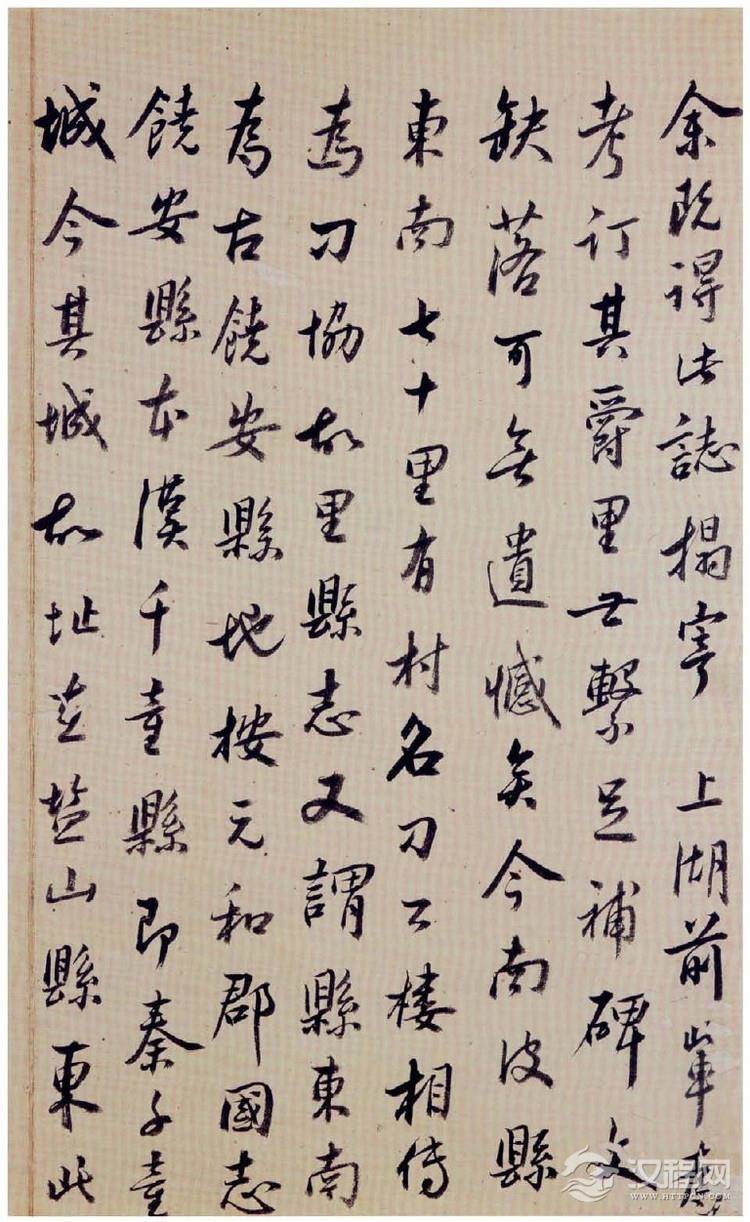 余既得此誌搨寄 上湖前輩為
考訂其爵里世繫足補碑文
缺落可無遺憾矣今南皮縣
東南七十里有村名刁公楼相傳
為刁協故里縣志又謂縣東南
為古饒安縣地按元和郡國志
饒安縣本漢千童縣即秦千童
城今其城故址在盐山縣東此
汉程网
WWW.HTTPCN.COM